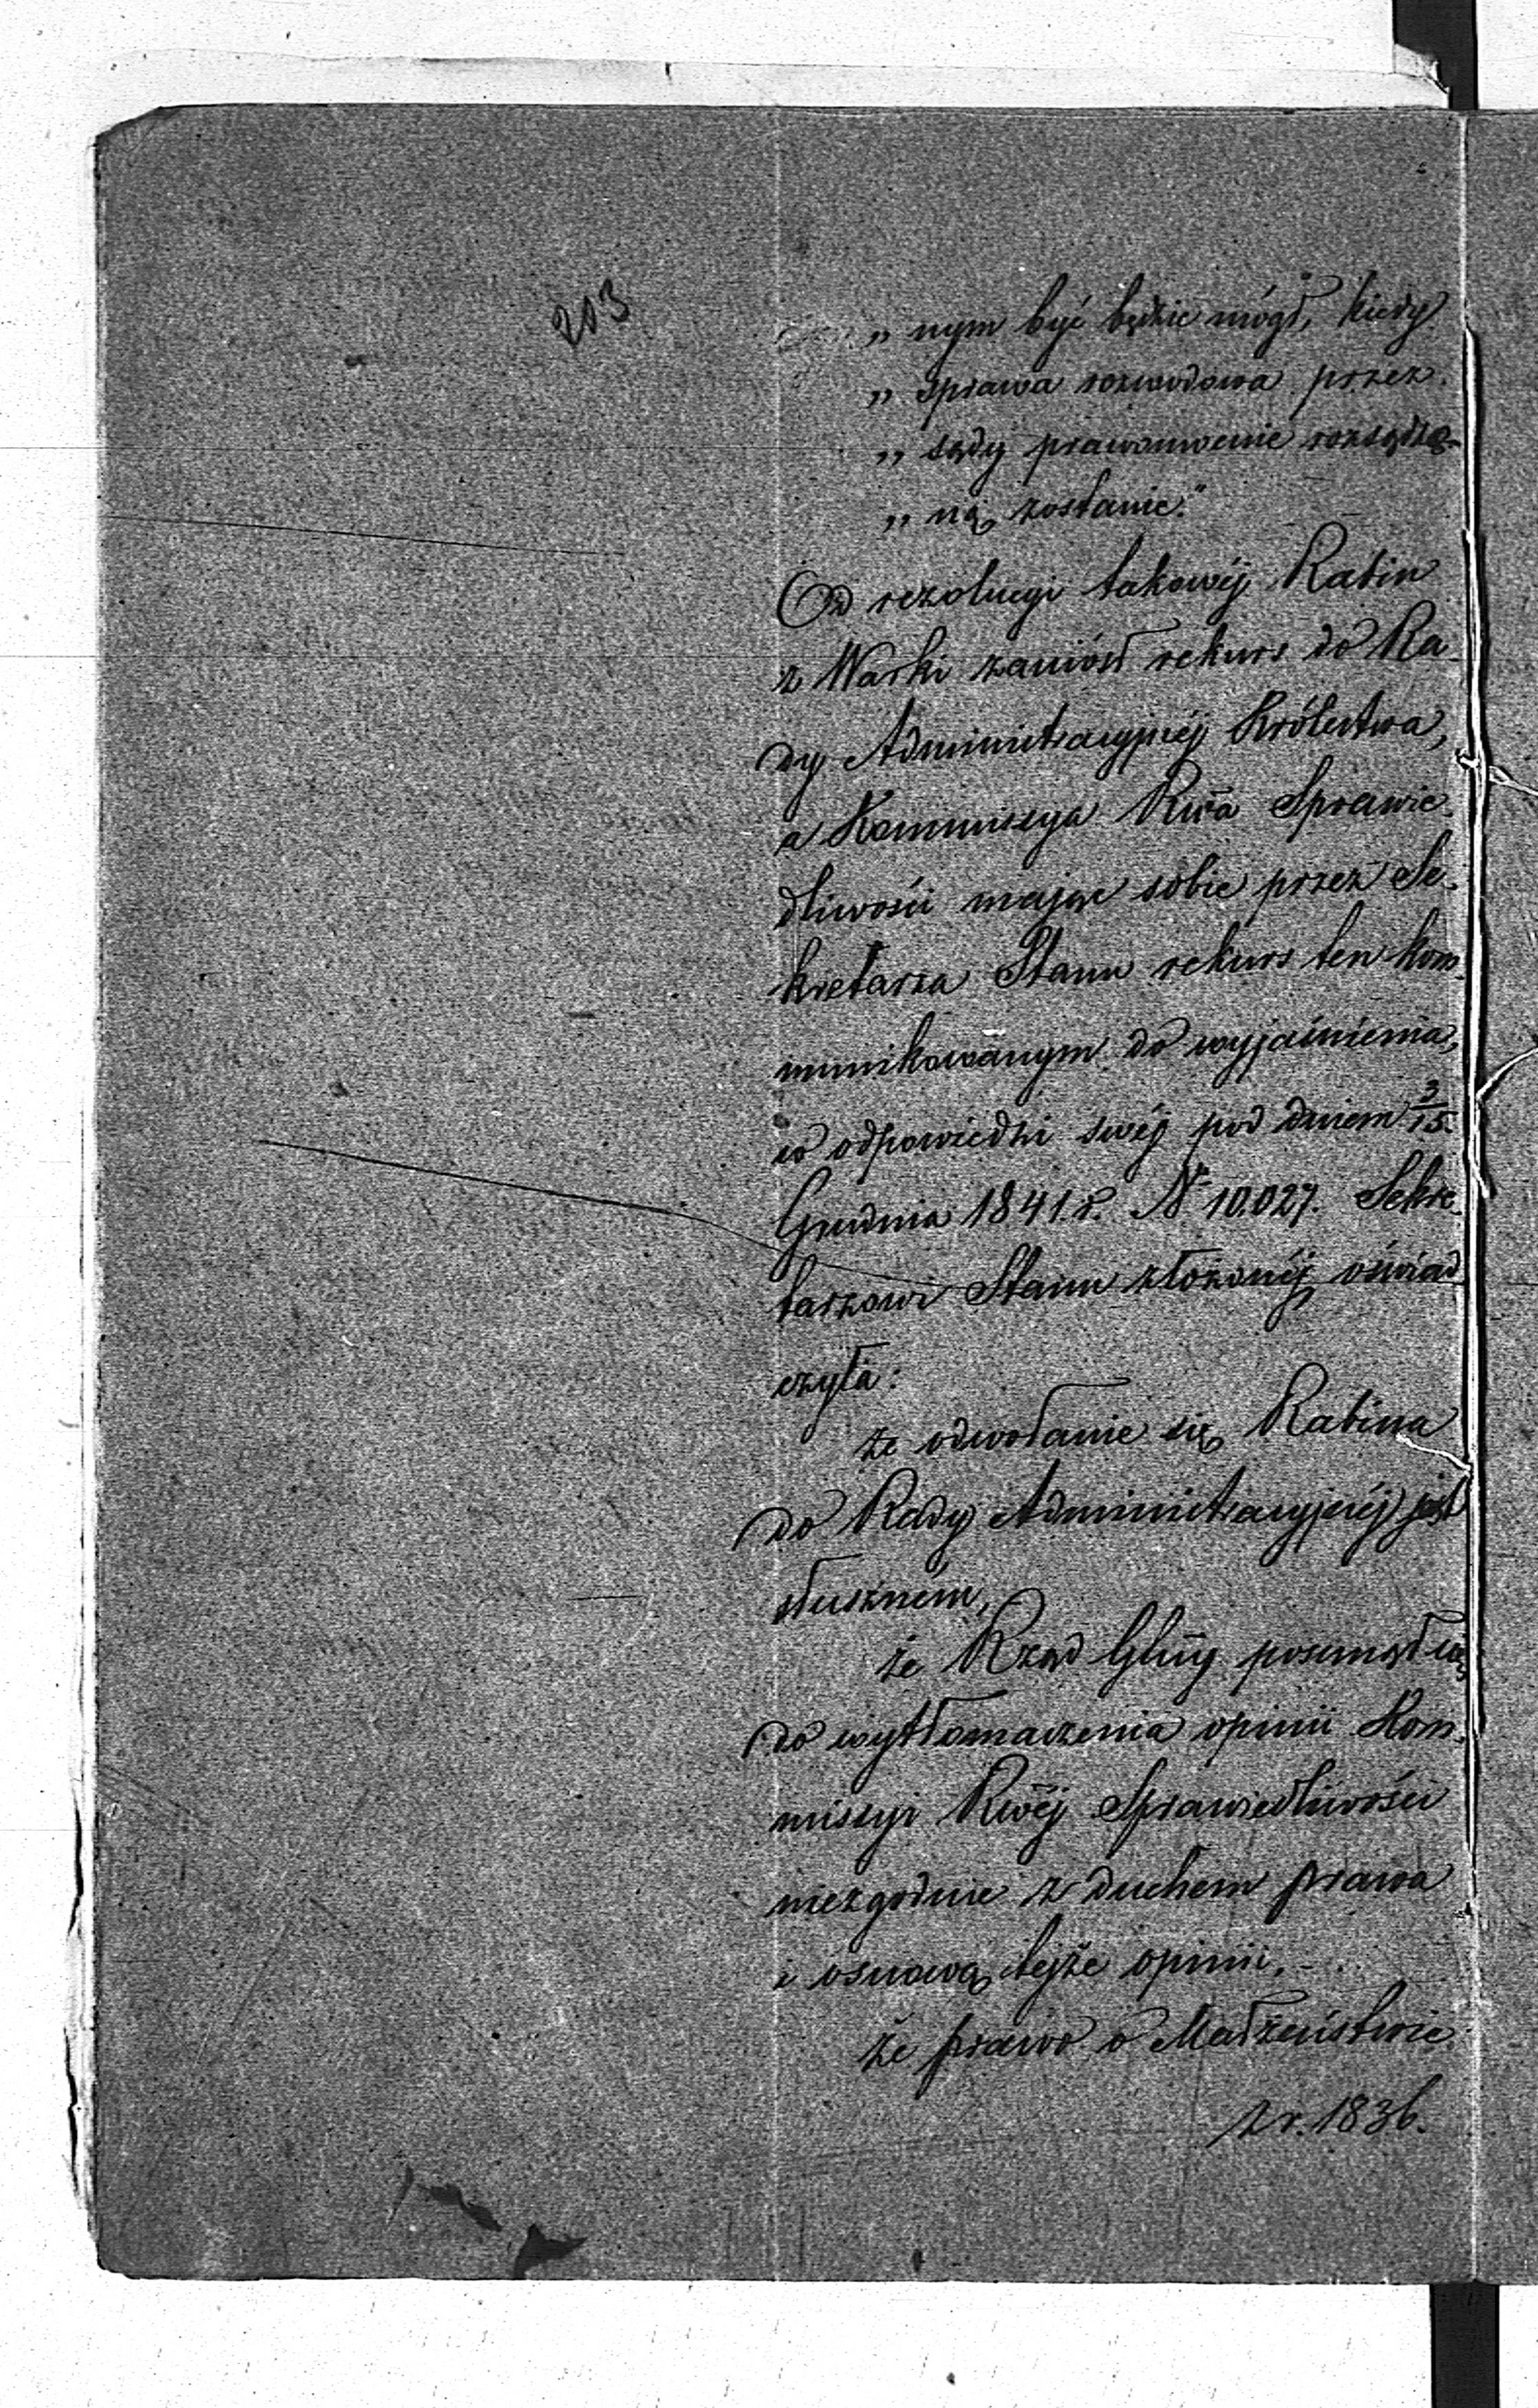 203
„ nym być będzie mógł, kiedy
„ sprawa rozwodowa przez
„ sądy prawomocnie rozsądzo-
„ ną zostanie."
Od rezolucyi takowéj Rabin
z Warki zaniósł rekurs do Ra-
dy Administracyjnéj Królestwa,
a Kommissya Rwa Sprawie-
dliwości mając sobie przez Se-
kretarza Stanu rekurs ten kom-
munikowanym do wyjaśnienia,
w odpowiedzi swéj pod dniem 3/15
Grudnia 1841 r. N 10.027. Sekre-
tarzowi Stanu złożonéj oświad
czyła:
że odwołanie się Rabina
do Rady Administracyjnéj jest
słuszném,
że Rząd Głny posunął się
do wytłomaczenia opinii Kom-
missyi Rwéj Sprawiedliwości
niezgodnie z duchem prawa
i osnową tejże opinii, -
że prawo o Małżeństwie
z r. 1836.